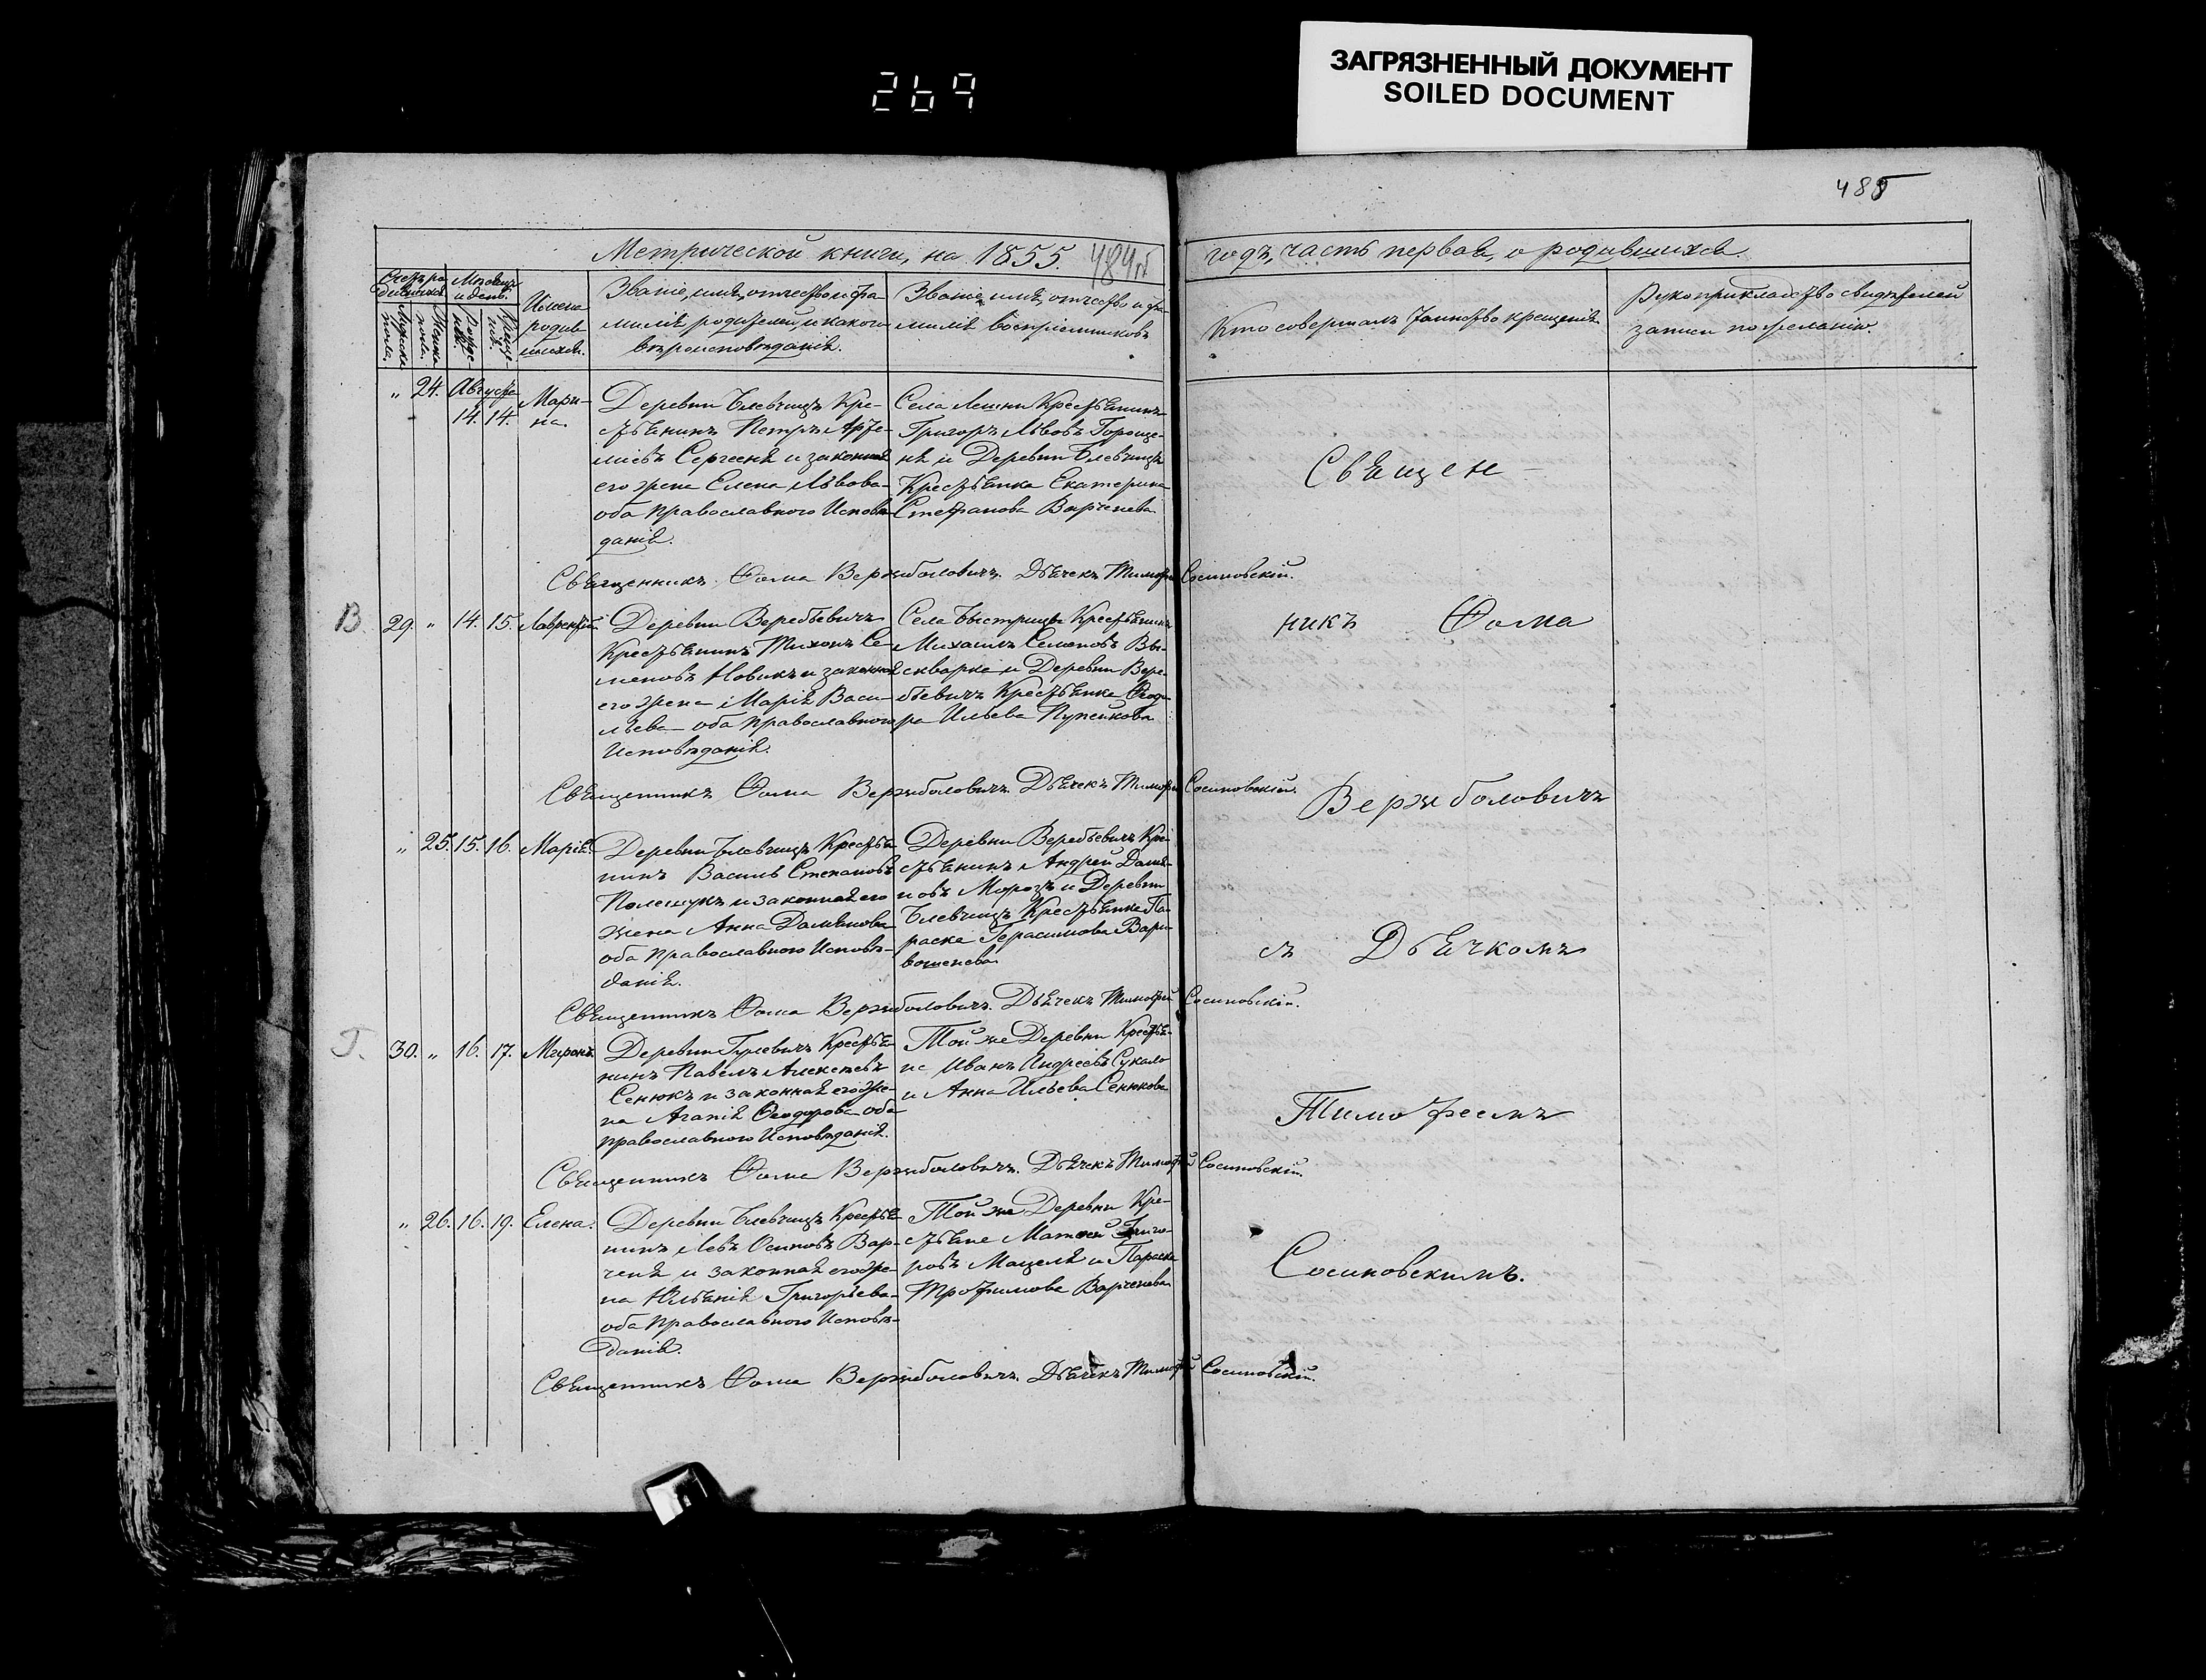 269
ЗАГРЯЗНЕННЫЙ ДОКУМЕНТ
SOILED DOCUMENT
485
Метрической книги, на 1855.
484об
годъ, часть первая, о родившихся.
Счетъ ро
дившихся
Мужска
пола.
Женска
пола.
Мѣсяцъ
и день.
Рожде-
нія.
Креще-
нія.
Имена
родив
шихся.
Званіе, имя, отчество и фа
милія родителей, и какого
вѣроисповѣданія.
Званіе, имя, отчество и фа
милія воспріемниковъ
Кто совершалъ таинство крещенія
Рукоприкладство свидѣтелей
записи по желанію.
" 24. Августа
14. 14.
Мари-
на.
Деревни Блевчицъ Кре-
стьянинъ Петръ Арте-
міевъ Сергееня и законная
его жена Елена Львова
оба православного Исповѣ
данія.
Села Лешни Крестьянинъ
Григоръ Львовъ Гороще-
ня и Деревни Блевчицъ
Крестьянка Екатерина
Стефанова Варченева
Священникъ Ѳома Вержболовичъ. Дьячекъ Тимофей Сосиновскій.
В. 29. " 14. 15. Лаврентій.
Деревни Веребьевичъ
Крестьянинъ Тихонъ Се
меновъ Новикъ и законная
его жена Марія Васи
льева оба православного
Исповѣданія.
Села Быстрицы Крестьянинъ
Михаилъ Семеновъ Вы-
скварка и Деревни Вере
бьевичъ Крестьянка Ѳеодо
ра Ильева Пупейкова
Священникъ Ѳома Вержболовичъ. Дьячекъ Тимофей Сосиновскій.
" 25. 15. 16. Марія.
Деревни Блевчицъ Крестья
нинъ Василь Степановъ
Полещукъ и законная его
жена Анна Домянова
оба православного Исповѣ-
данія.
Деревни Веребьевичъ Кре
стьянинъ Андрей Домя-
новъ Морозъ и Деревни
Блевчицъ Крестьянка Па
раска Герасимова Вари-
вошенева
Священникъ Ѳома Вержболовичъ. Дьячекъ Тимофей Сосиновскій.
Г. 30. " 16. 17. Миронъ.
Деревни Гулевичъ Крестья
нинъ Павелъ Алексѣевъ
Сенюкъ и законная его же-
на Агапія Ѳеодорова оба
православного Исповѣданія.
Той же Деревни Крестья-
не Иванъ Андреевъ Сукало
и Анна Ильева Сенюкова
Священникъ Ѳома Вержболовичъ. Дьячекъ Тимофей Сосиновскій.
" 26. 16. 19. Елена.
Деревни Блевчицъ Крестья
нинъ Левъ Осиповъ Вар-
ченя и законная его же-
на Юльянія Григорьева
оба православного Исповѣ-
данія.
Той же Деревни Кре-
стьяне Матѳей Григо-
ровъ Мацеля и Параска
Трофимова Варченева
Священникъ Ѳома Вержболовичъ. Дьячекъ Тимофей Сосиновскій.
Священ-
никъ Ѳома
Вержболовичъ
съ Дьячкомъ
Тимофеемъ
Сосиновскимъ.